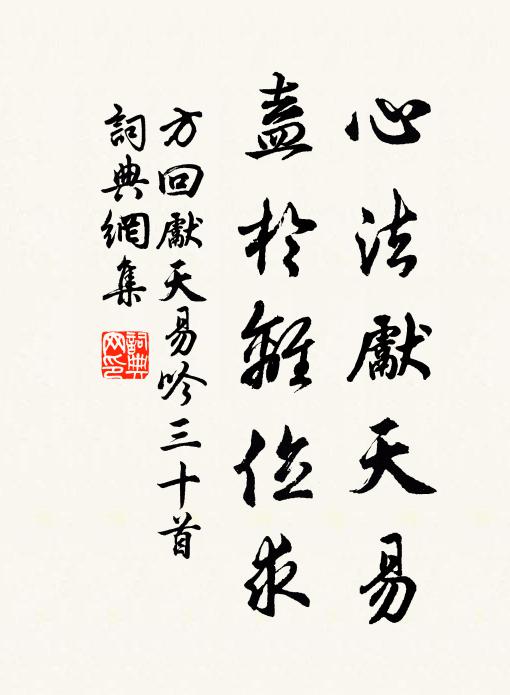 心法獻天易
盍於離位求
方回獻天易吟三十首
詞典網集
詞典
网印